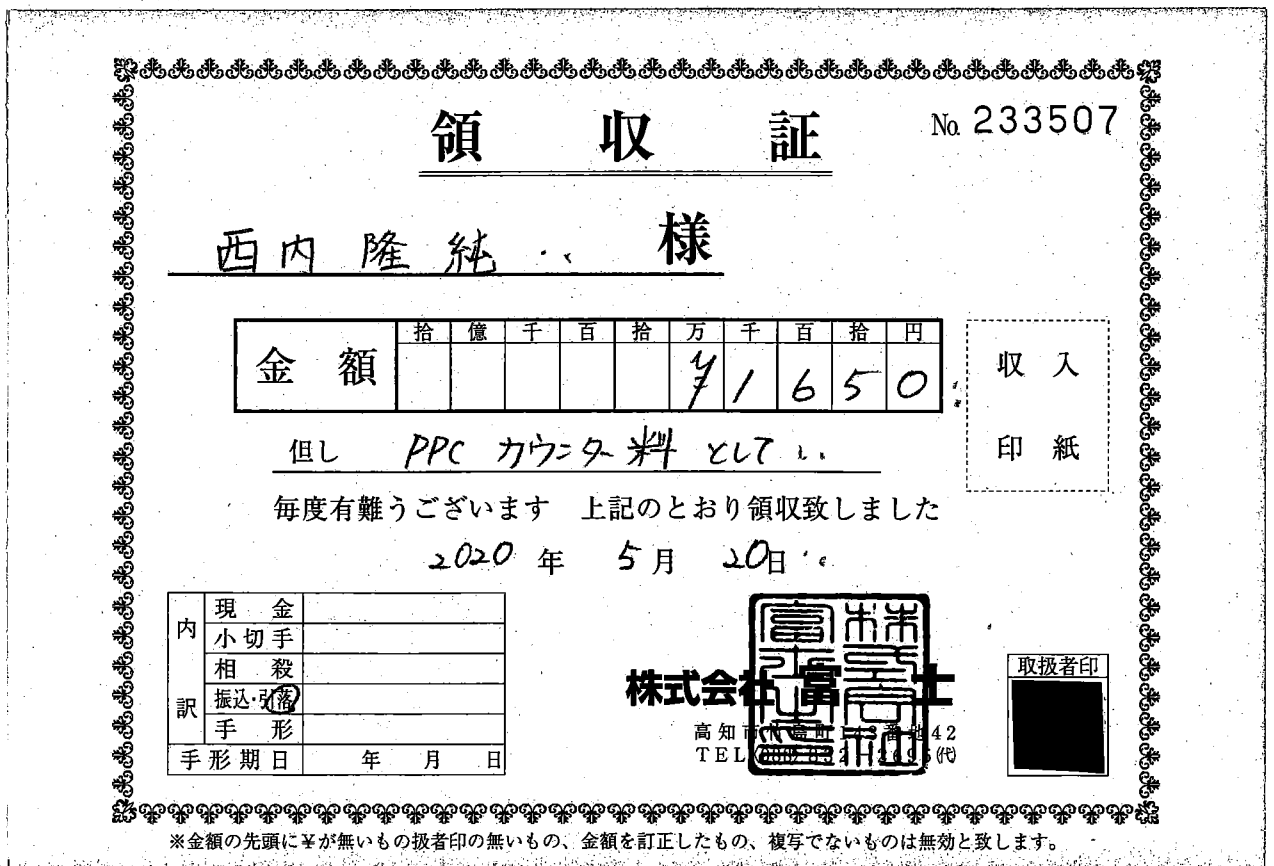 領収証
No. 233507
西内 隆純 様
拾 億 千 百 拾 万 千 百 拾 円
金額 ¥1650
収入
印紙
但し PPC カウンター料 として
毎度有難うございます 上記のとおり領収致しました
2020年 5月 20日
内訳
現金
小切手
相殺
振込・引落
手形
手形期日 年 月 日
株式会社 富士
高知市
42
TEL
(代)
取扱者印
※金額の先頭に¥が無いもの扱者印の無いもの、金額を訂正したもの、複写でないものは無効と致します。